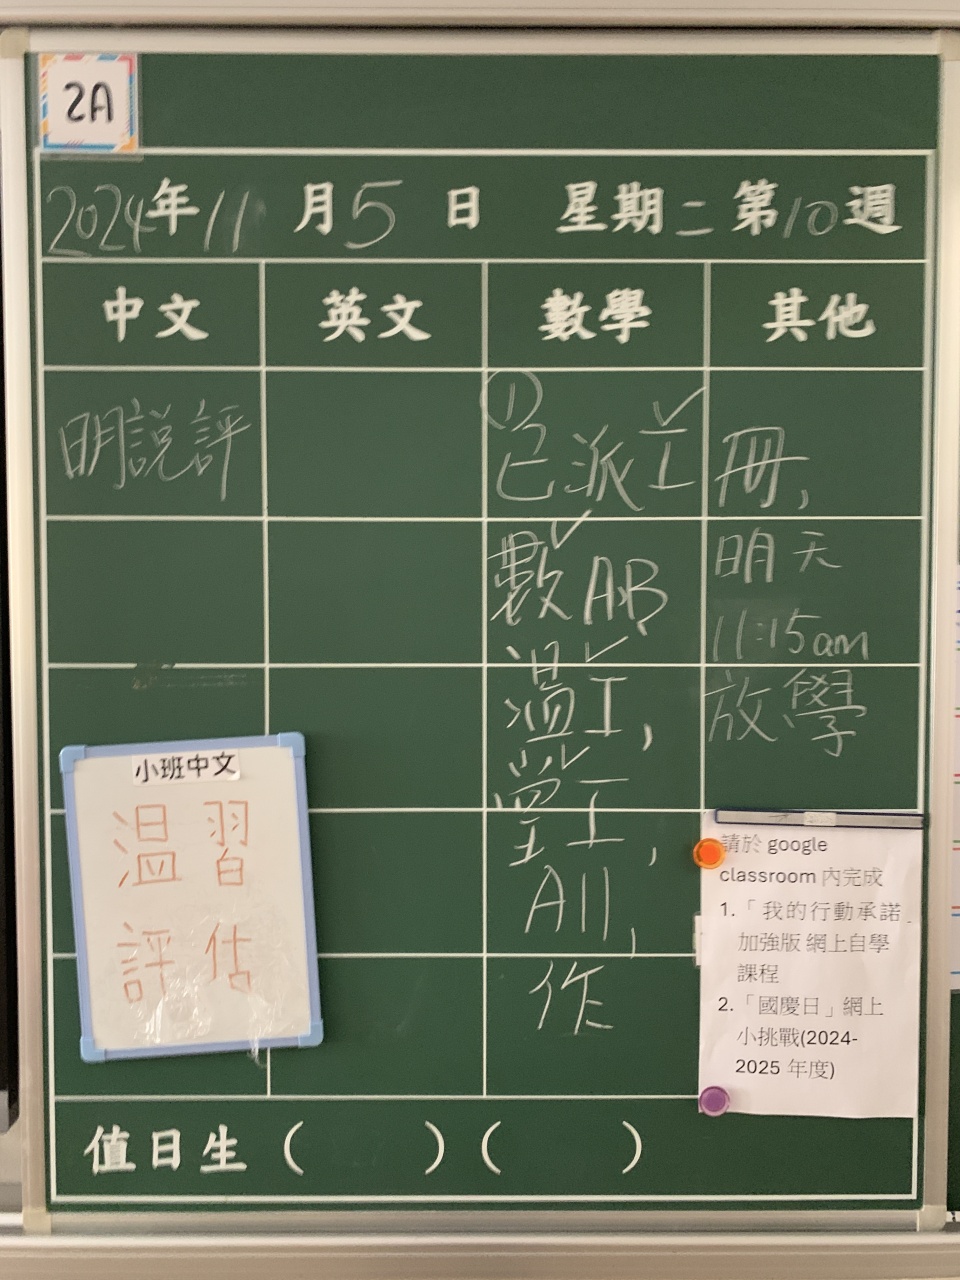 2A
2024年11月5日 星期二 第10週
中文 英文 數學 其他
明說評
①
已派工
數A,B,
溫工,
堂工,
All,
作
冊,
明天
11:15am
放學
小班中文
溫習
評估
請於 google
classroom 內完成
1.「我的行動承諾」
加強版 網上自學
課程
2.「國慶日」網上
小挑戰(2024-
2025 年度)
值日生 ( ) ( )